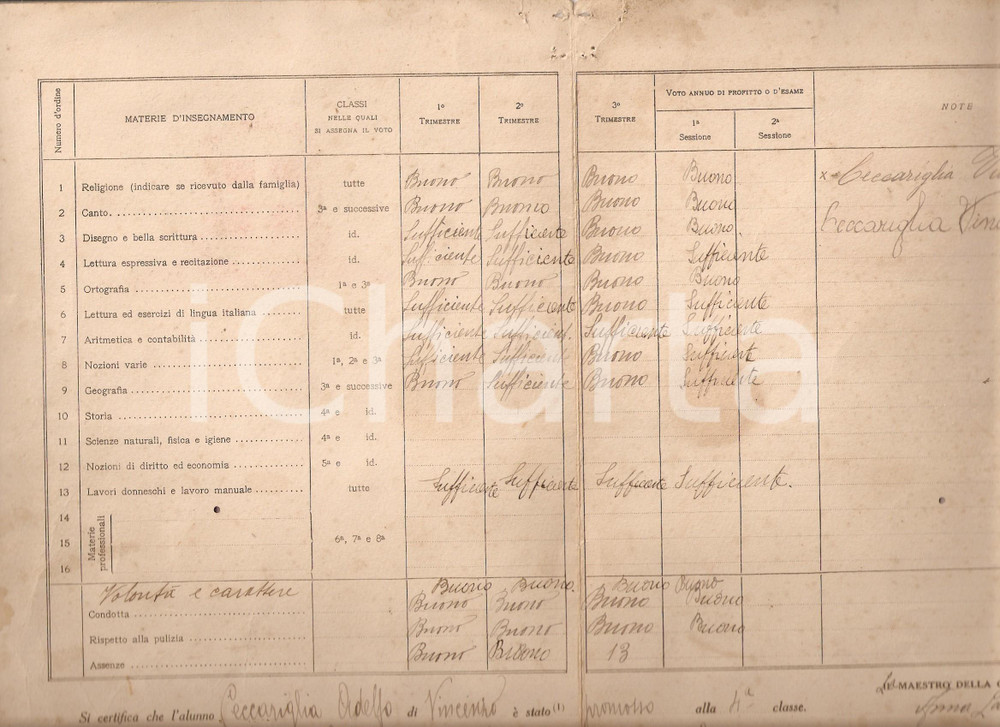 Numero d'ordine MATERIE D'INSEGNAMENTO CLASSI NELLE QUALI SI ASSEGNA IL VOTO 1º TRIMESTRE 2º TRIMESTRE 3º TRIMESTRE VOTO ANNUO DI PROFITTO O D'ESAME 1ª Sessione 2ª Sessione NOTE
1 Religione (indicare se ricevuto dalla famiglia) tutte Buono Buono Buono Buono x Ceccariglia
2 Canto 3ª e successive Buono Buono Buono Buono Ceccariglia
3 Disegno e bella scrittura id. Sufficiente Sufficiente Buono Buono
4 Lettura espressiva e recitazione id. Sufficiente Sufficiente Buono Sufficiente
5 Ortografia 1ª e 3ª Buono Buono Buono Buono
6 Lettura ed esercizi di lingua italiana tutte Sufficiente Sufficiente Buono Sufficiente
7 Aritmetica e contabilità id. Sufficiente Sufficient. Sufficiente Sufficiente
8 Nozioni varie 1ª, 2ª e 3ª Sufficiente Sufficiente Buono Sufficiente
9 Geografia 3ª e successive Buono Sufficiente Buono Sufficiente
10 Storia 4ª e id.
11 Scienze naturali, fisica e igiene 4ª e id.
12 Nozioni di diritto ed economia 5ª e id.
13 Lavori donneschi e lavoro manuale tutte Sufficiente Sufficiente Sufficiente Sufficiente.
14
15 Materie professionali 6ª, 7ª e 8ª
16
Volontà e carattere Buono Buono. Buono Buono
Condotta Buono Buono Buono Buono
Rispetto alla pulizia Buono Buono Buono Buono
Assenze Buono Buono 13
IL MAESTRO DELLA C
Si certifica che l'alunno Ceccariglia Adelfo di Vincenzo è stato (1) promosso alla 4ª classe. Anna
iCharta